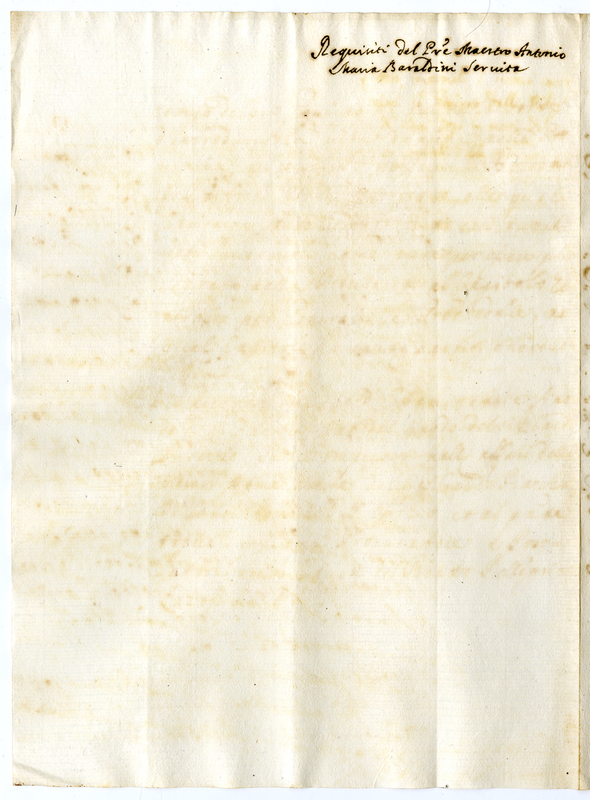 Requisiti del Pr̃e Maestro Antonio
Maria Baraldini Servita